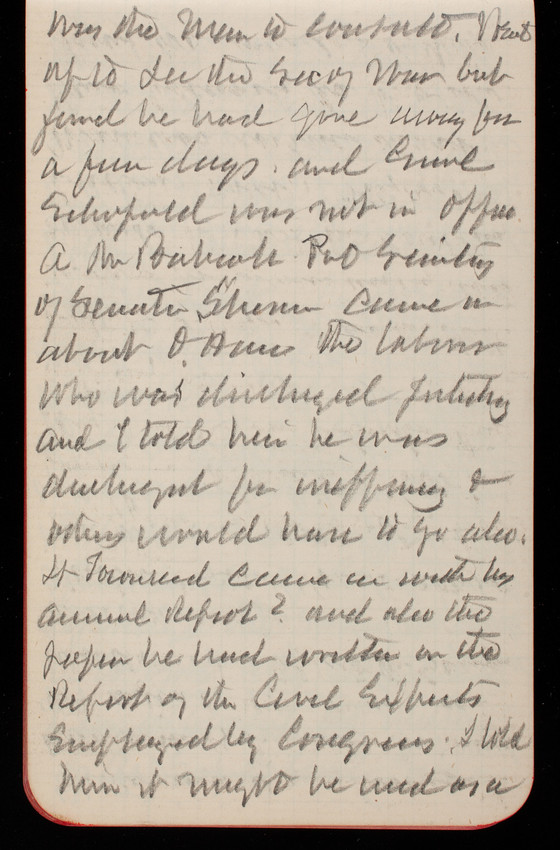 was the man to consult. Went
up to see the Secy War but
found he had gone away for
a few days. and Genl
Schofield was not in office
A Mr Babcock Pvt Secretary
of Senator came in
about O. the laborer
who was discharged yesterday
and I told him he was
discharged for inefficiency &
others would have to go also.
Lt Townsend came in with his
annual Report & and also the
paper he had written on the
Report of the Civil Experts
Employed by Congress. I told
him it might be used as a